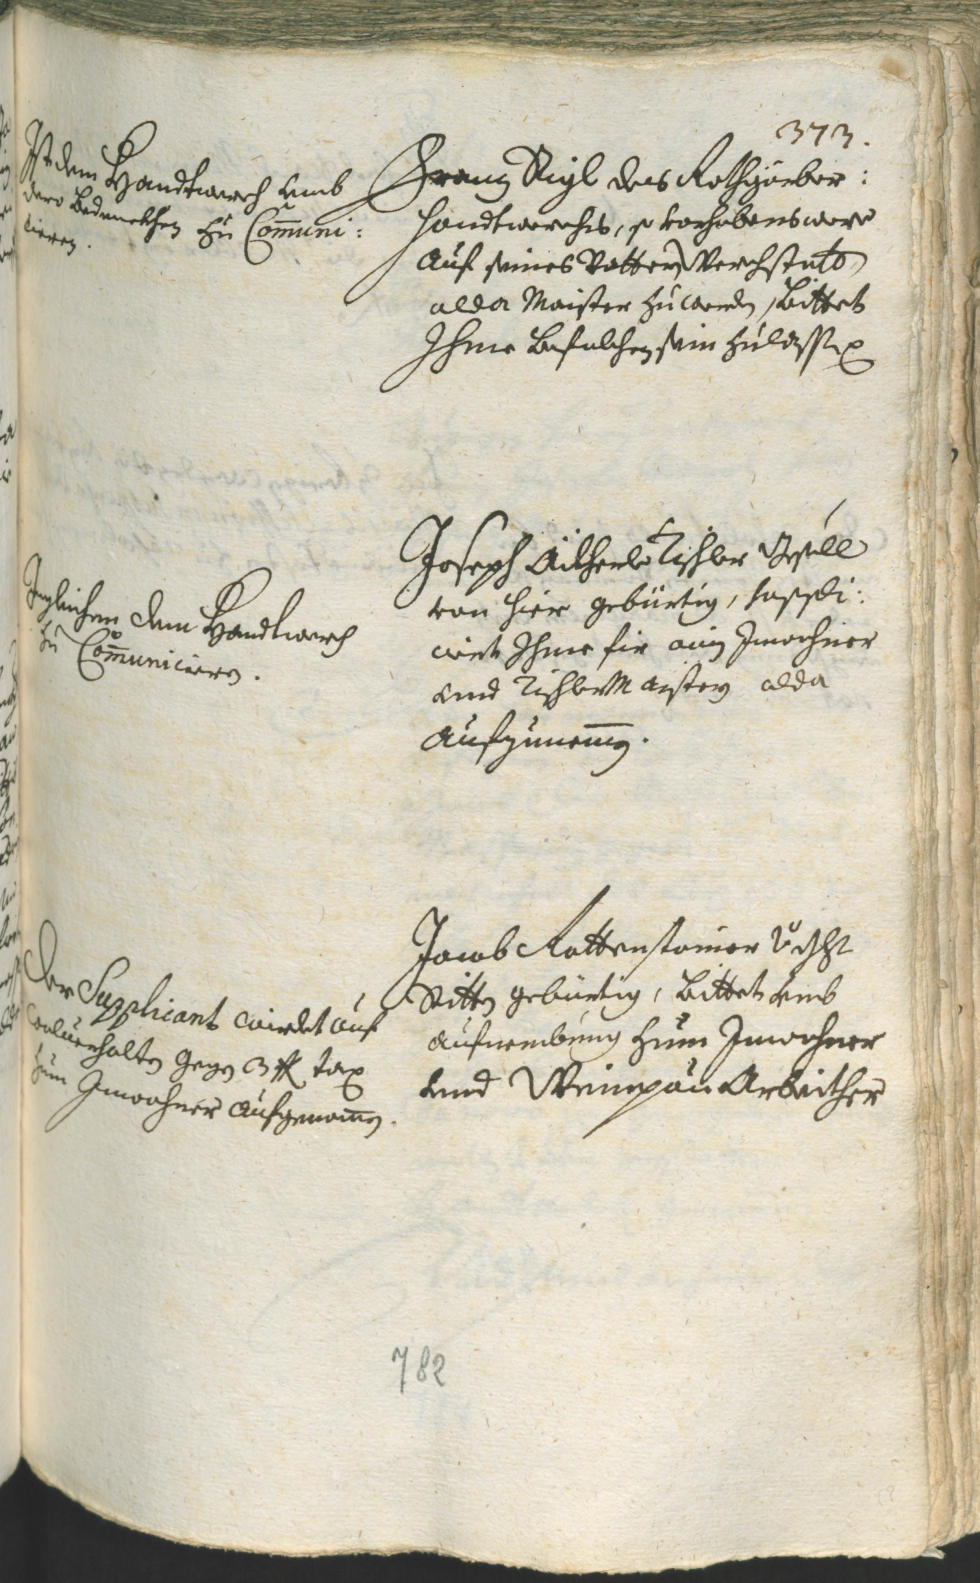 373.
Ist dem Handtwerch umb
dero Bedunckhen zu Com̅uni:
cieren.
Franz Rigl des Rothgärber:
handtwerchs, so vorhabens were
auf seines Vatters Werchstatt
alda Maister zu werden, Bittet
Ihme
Ingleichem dem Handtwerch
zu Com̅uniciern.
Joseph Tischler Gesell
von hier gebürtig,
Ihme fir ain Inwohner
und Tischler Maistern alda
aufzunem̅en.
Der Supplicant wirdet auf
wolverhalten gegen 3 fl tax
zum Inwohner aufgenom̅en.
Jacob Rottenstainer
gebürtig, Bittet umb
aufnembung zum Inwohner
und Weinpau Arbeither
782